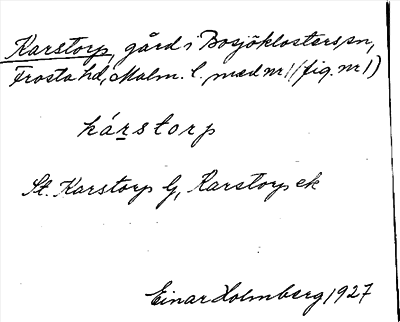 Karstorp, gård i Bosjöklosters sn,
Frosta hd, Malm. l. med nr 1 (fig. nr 1)
kárstorp
St. Karstorp G, Karstorps ek
Einar Holmberg 1927